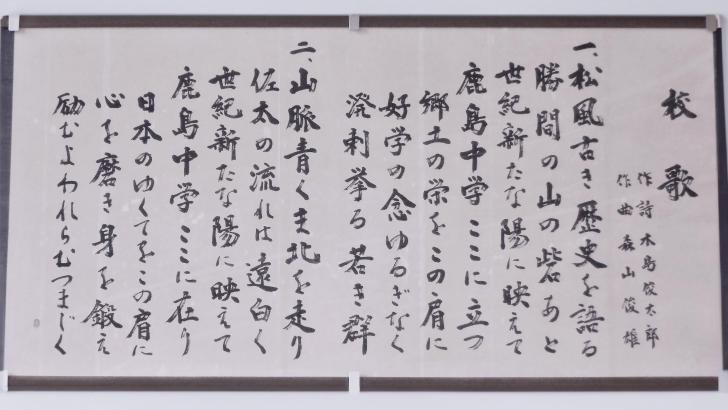 校歌
作詩 木島俊太郎
作曲 森山俊雄
一、松風古き歴史を語る
勝間の山の砦あと
世紀新たな陽に映えて
鹿島中学ここに立つ
郷土の栄をこの肩に
好学の念ゆるぎなく
溌剌挙る若き群
二、山脈青くま北を走り
佐太の流れは遠白く
世紀新たな陽に映えて
鹿島中学ここに在り
日本のゆくてをこの肩に
心を磨き身を鍛え
励むよわれらむつまじく